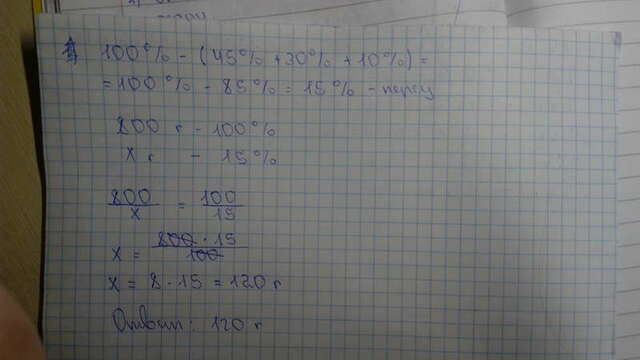 100% - (45% + 30% + 10%) =
= 100% - 85% = 15% - перец
800 г - 100%
x г - 15%
800/x = 100/15
x = 800 · 15 / 100
x = 8 · 15 = 120 г
Ответ: 120 г